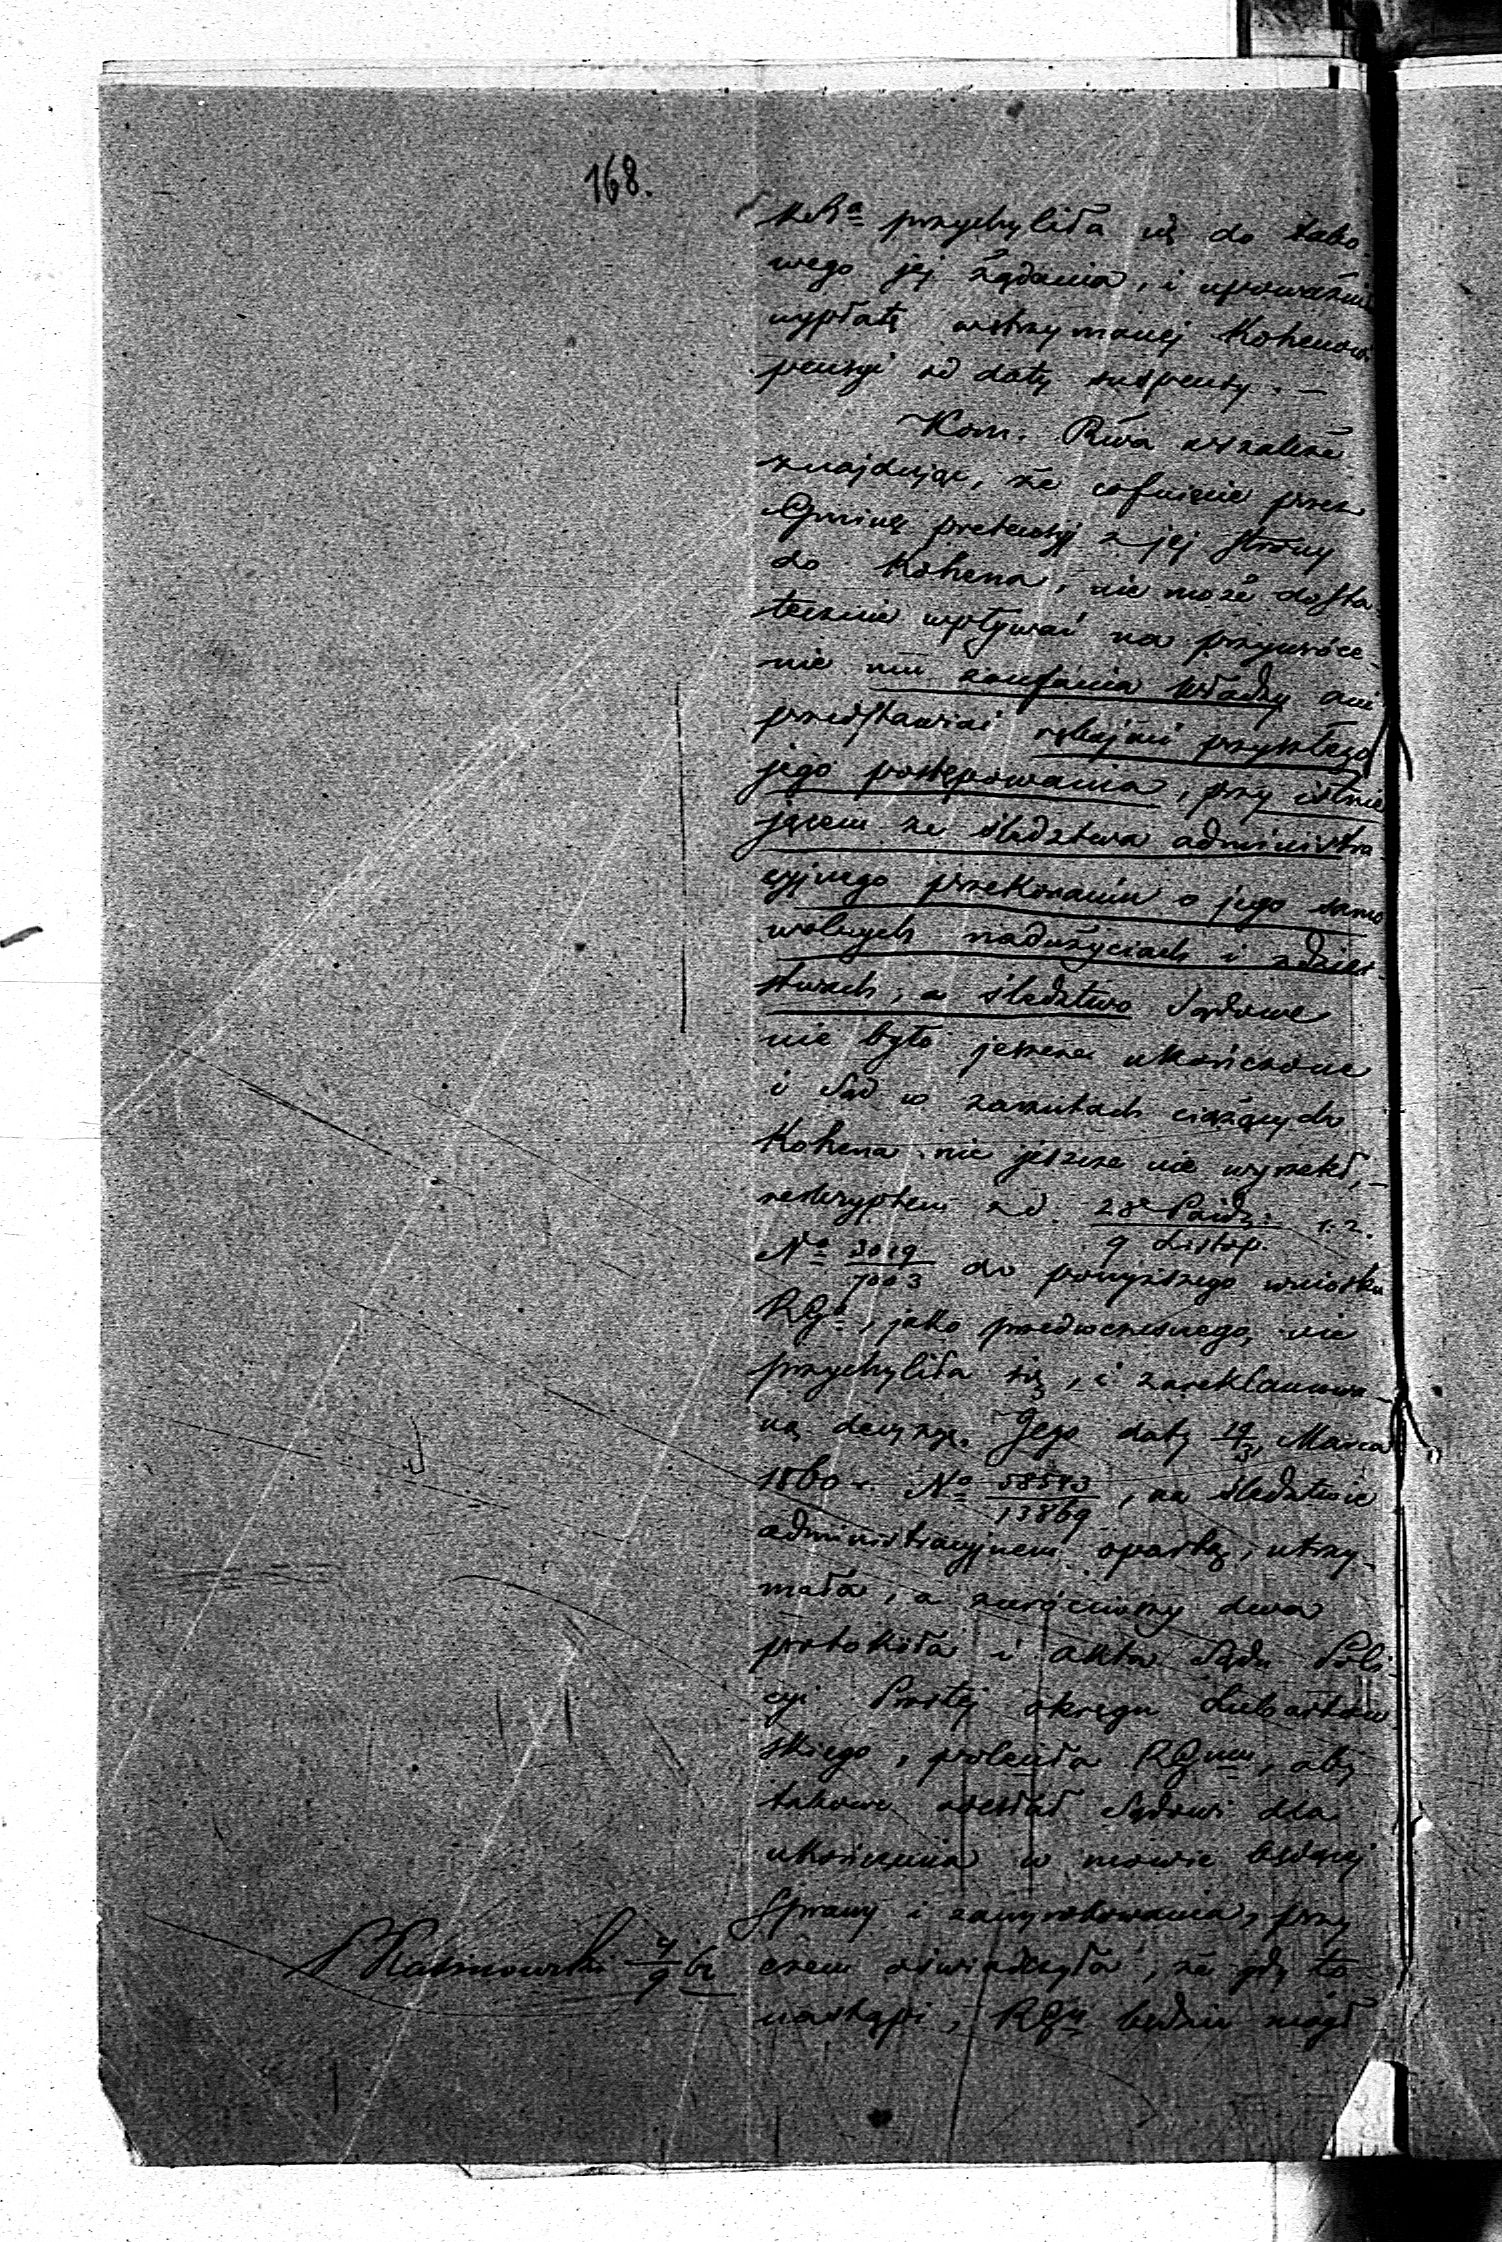 168.
KRa przychyliła się do tako
wego jej żądania, i upoważniła
wypłatę wstrzymanej Kohenowi
pensyi od daty suspensy. —
Kom. Rwa wszakże
znajdując, że cofnięcie przez
Gminę pretensyj z jej strony
do Kohena, nie może dosta
tecznie wpływać na przywróce-
nie mu zaufania Władzy ani
przedstawiać rękojmi przyszłego
jego postępowania, przy istnie
jącem ze śledztwa administra
cyjnego przekonaniu o jego samo
wolnych nadużyciach i zdzier
stwach, a śledztwo Sądowe
nie było jeszcze ukończone
i Sąd w zarzutach ciążących
Kohena nic jeszcze nie wyrzekł, —
reskryptem z d. 28 Paźdz: / 9 Listop. r. z.
No 3019/7003 do powyższego wniosku
RGo, jako przedwczesnego, nie
przychyliła się, i zareklamowa-
ną decyzyę Jego daty 19/31 Marca
1860 r. No 58543/13869, na śledztwie
administracyjnem opartą, utrzy-
mała, a zwróciwszy dwa
protokóła i akta Sądu Poli
cyi Prostej okręgu Lubartow
skiego, poleciła RGmu, aby
takowe odesłał Sądowi dla
ukończenia w mowie będącej
Sprawy i zawyrokowania, przy
czem oświadczyła, że gdy to
nastąpi, RGu będzie mógł
Kalinowski 4/9 62